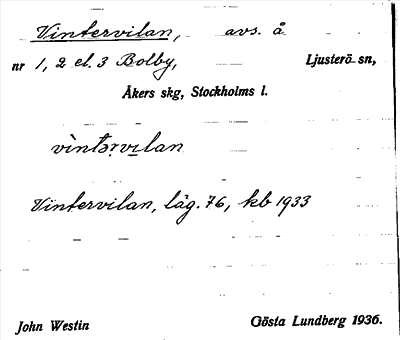 Vintervilan, avs. å
nr 1, 2 el. 3 Bolby, Ljusterö sn,
Åkers skg, Stockholms l.
vìntərvılan
Vintervilan, läg. 76, kb 1933
John Westin Gösta Lundberg 1936.